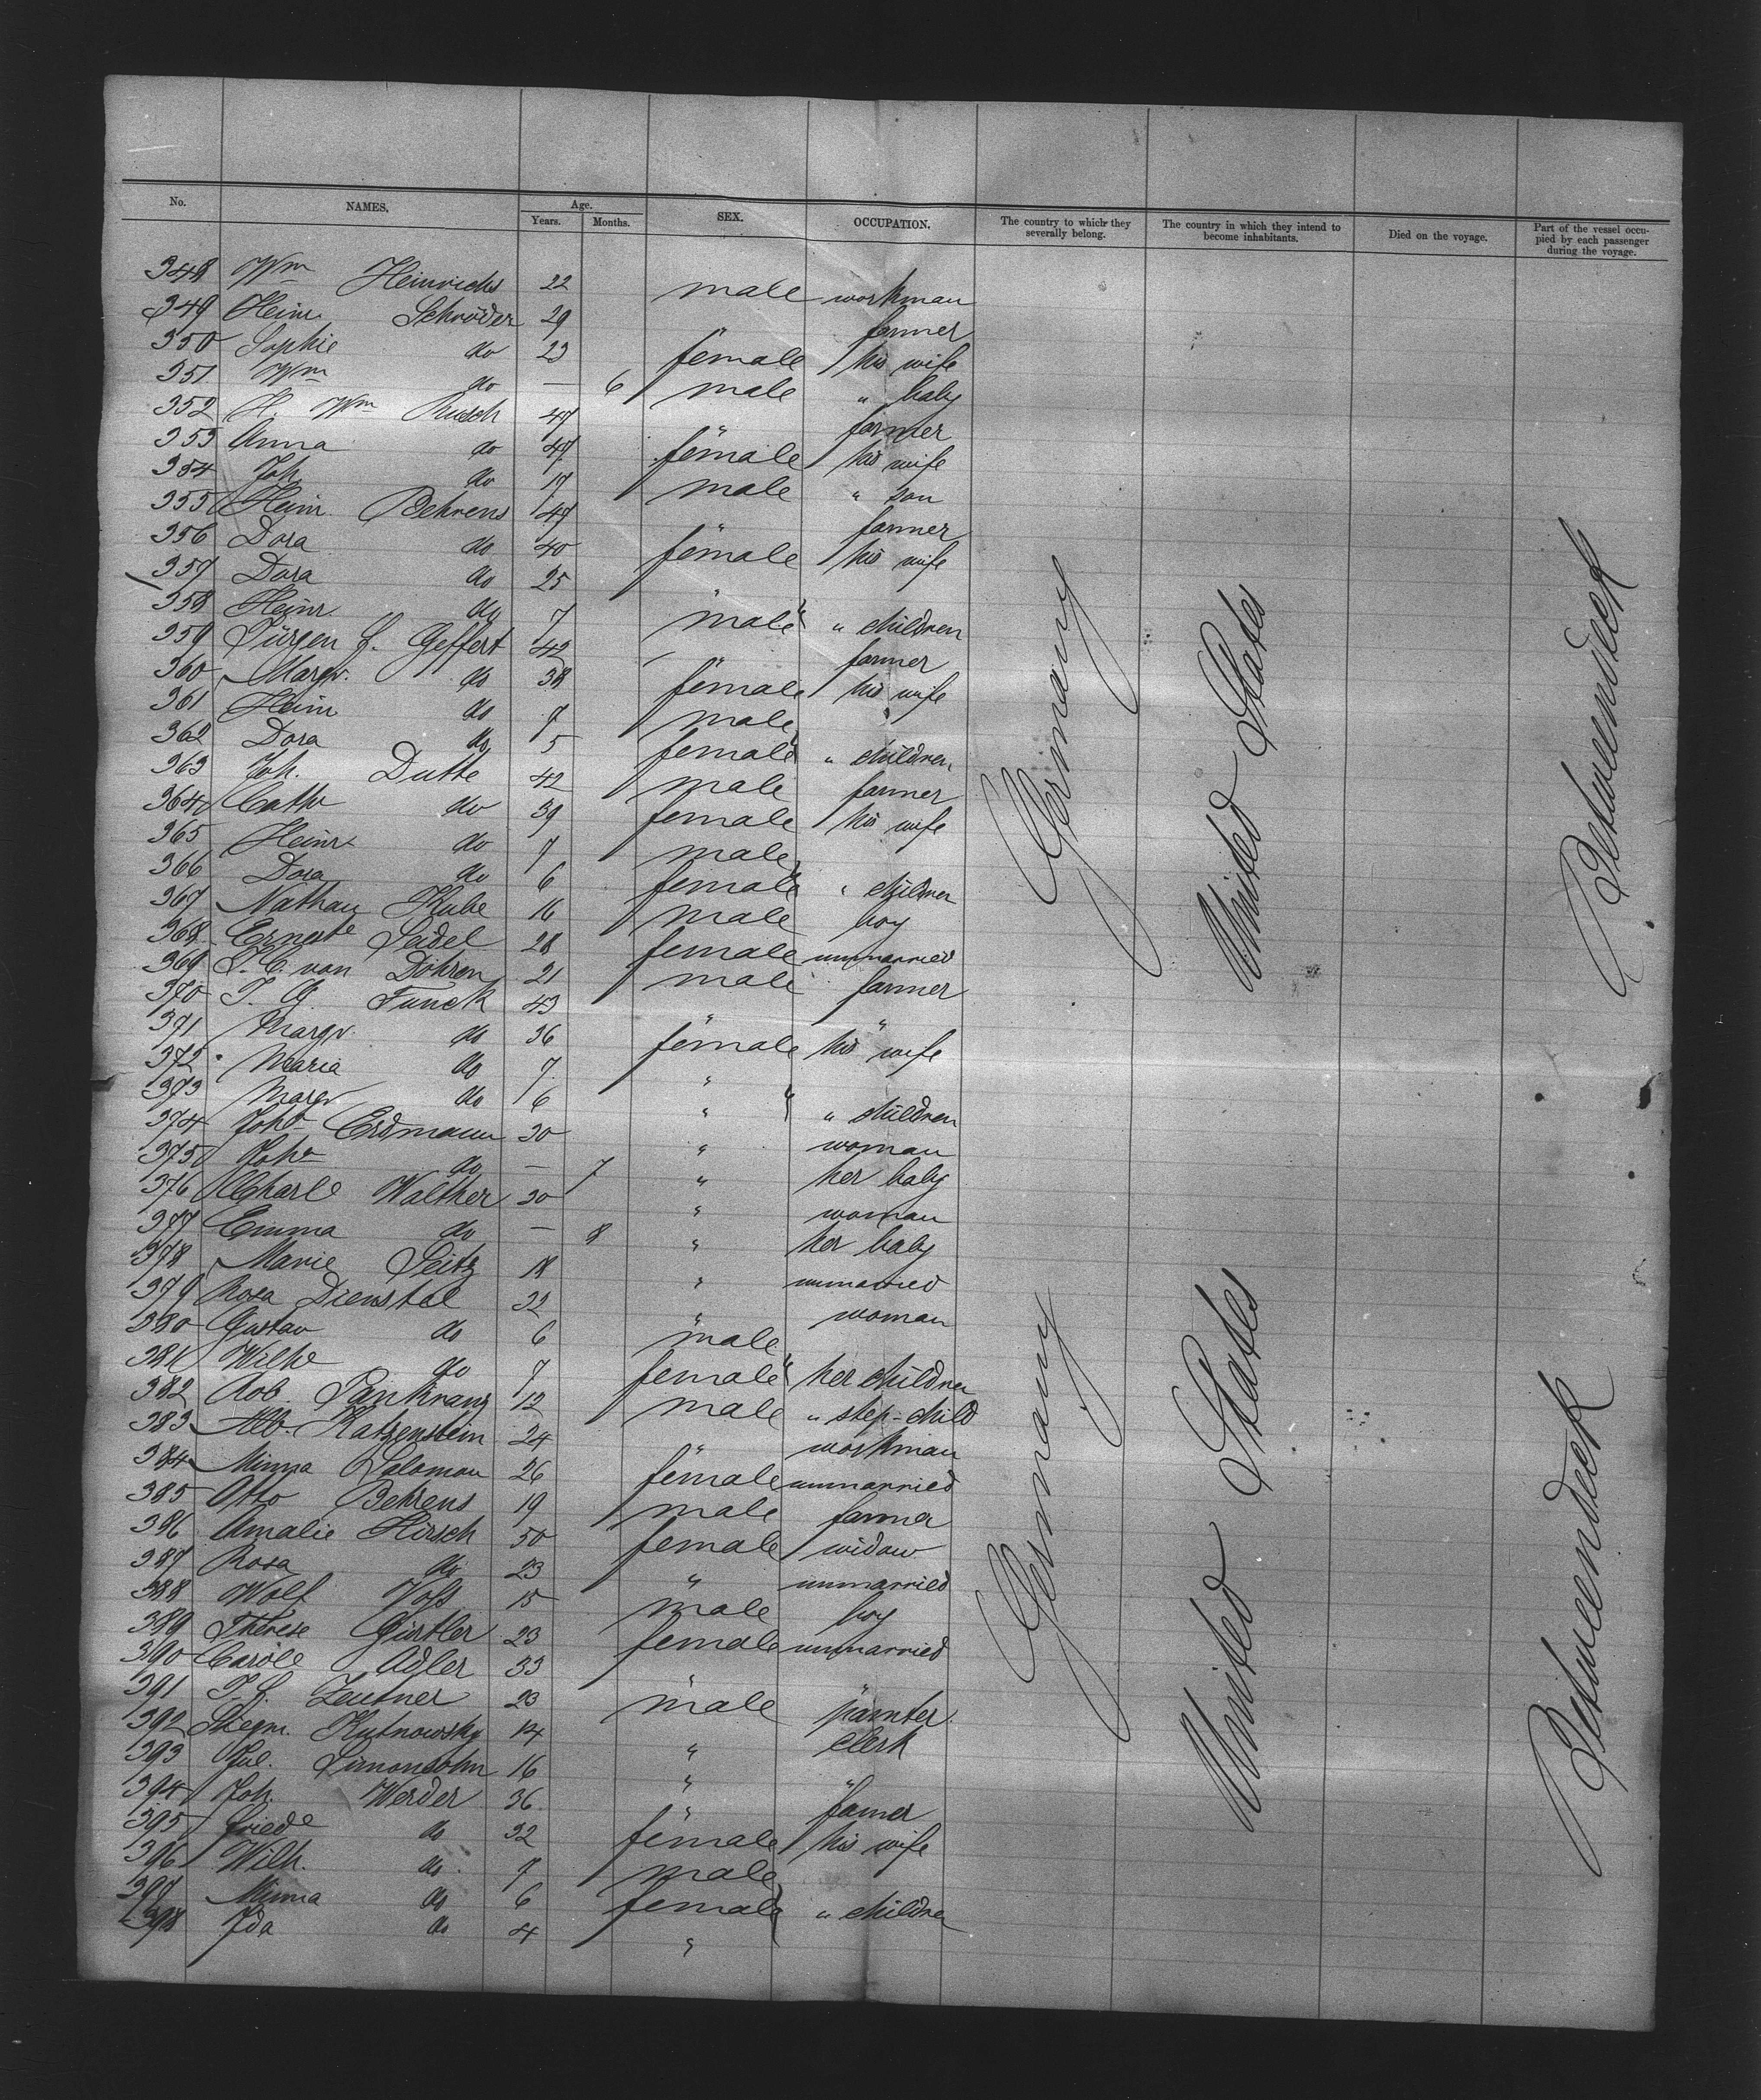 No. NAMES. Age. Years. Months. SEX. OCCUPATION. The country to which they severally belong. The country in which they intend to become inhabitants. Died on the voyage. Part of the vessel occupied by each passenger during the voyage.
348 Wm Heinrichs 22 male workman
349 Heinr. Schröder 29 " farmer
350 Sophie do 23 female his wife
351 Wm do — 6 male " baby
352 H. Wm Rusch 47 " farmer
353 Anna do 47 female his wife
354 Joh. do 17 male " son
355 Heinr. Behrens 47 " farmer
356 Dora do 40 female his wife
357 Dora do 25 "
358 Heinr. do 7 male " children
359 Jürgen J. Geffert 42 " farmer
360 Margr. do 38 female his wife
361 Heinr do 7 male
362 Dora do 5 female " children
363 Joh. Dutte 42 male farmer
364 Cathr do 39 female his wife
365 Heinr do 7 male
366 Dora do 6 female " children
367 Nathan Kube 16 male boy
368 Ernest Seidel 28 female unmarried
369 J. C. von Döhren 21 male farmer
370 J. G. Funck 43 " "
371 Margr. do 36 female his wife
372 Maria do 7 "
373 Margr do 6 " " children
374 Joh Erdmann 30 " woman
375 Joh do — 7 " her baby
376 Charl Walther 30 " woman
377 Emma do — 8 " her baby
378 Marie Seitz 18 " unmarried
379 Rosa Dienstel 32 " woman
380 Gustav do 6 male
381 Wilhe do 7 female her children
382 Rob. Pankranz 12 male " step-child
383 Alb. Katzenstein 24 " workman
384 Minna Salomon 26 female unmarried
385 Otto Behrens 19 male farmer
386 Amalie Hirsch 50 female widow
387 Rosa do 23 " unmarried
388 Wolf Voss 15 male boy
389 Therese Girtler 23 female unmarried
390 Carole Adler 33 " "
391 J. S. Zentner 23 male painter
392 Siegm. Kutnowsky 14 " clerk
393 Jul. Simonsohn 16 " "
394 Joh. Werder 36 " farmer
395 Friede do 32 female his wife
396 Wilh. do 7 male
397 Minna do 6 female " children
398 Ida do 4 "
Germany
United States
Betweendeck
Germany
United States
Betweendeck